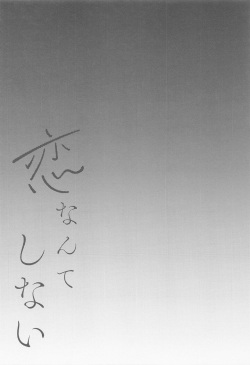 恋なんて
しない